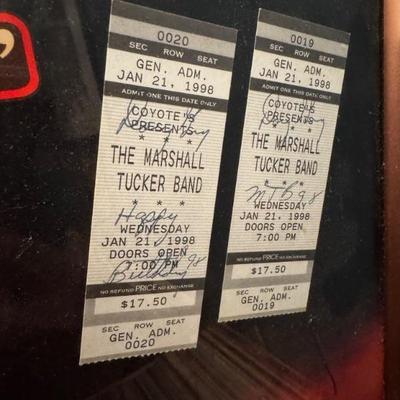 ”
0020
SEC ROW SEAT
GEN. ADM.
JAN 21, 1998
ADMIT ONE THIS DATE ONLY
COYOTE'S
PRESENTS
* * *
THE MARSHALL
TUCKER BAND
* * *
Happy
WEDNESDAY
JAN 21, 1998
DOORS OPEN
7:00 PM
Birthday 98
NO REFUND PRICE NO EXCHANGE
$17.50
SEC ROW SEAT
GEN. ADM.
0020
0019
SEC ROW SEAT
GEN. ADM.
JAN 21, 1998
ADMIT ONE THIS DATE ONLY
COYOTE'S
PRESENTS
* * *
THE MARSHALL
TUCKER BAND
* * *
MTB 98
WEDNESDAY
JAN 21, 1998
DOORS OPEN
7:00 PM
NO REFUND PRICE NO EXCHANGE
$17.50
SEC ROW SEAT
GEN. ADM.
0019